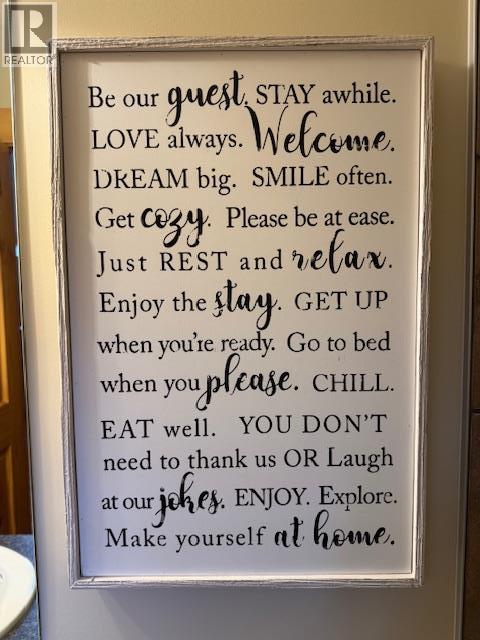 R
REALTOR
Be our guest. STAY awhile.
LOVE always. Welcome.
DREAM big. SMILE often.
Get cozy. Please be at ease.
Just REST and relax.
Enjoy the stay. GET UP
when you're ready. Go to bed
when you please. CHILL.
EAT well. YOU DON'T
need to thank us OR Laugh
at our jokes. ENJOY. Explore.
Make yourself at home.